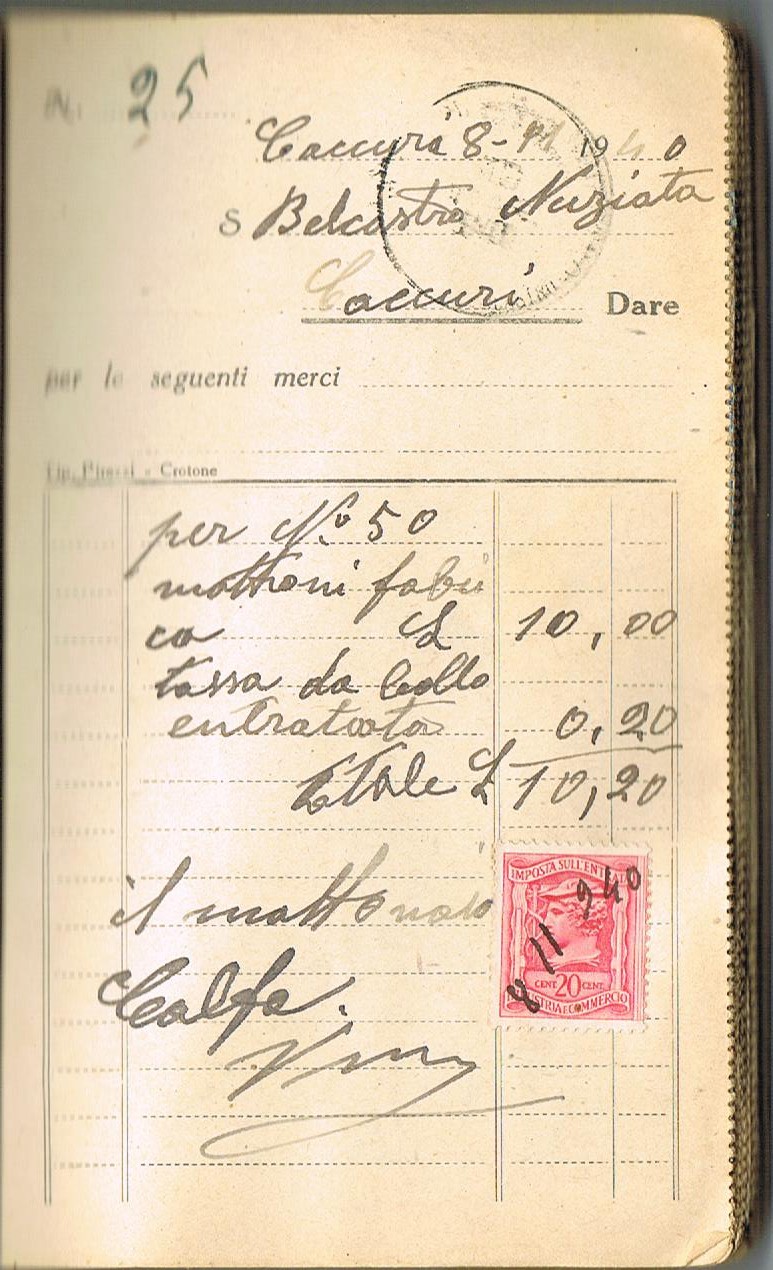 N. 25
Caccuri 8-11 1940
S Belcastro Nuziata
Caccuri Dare
per le seguenti merci
Tip. Pirozzi - Crotone
per N.º 50
mattoni fabri
ca £ 10,00
tassa da bollo
entrata 0,20
totale £ 10,20
il mattonaio
Calfa
IMPOSTA SULL'ENT
8 11 940
CENT. 20 CENT.
INDUSTRIA E COMMERCIO